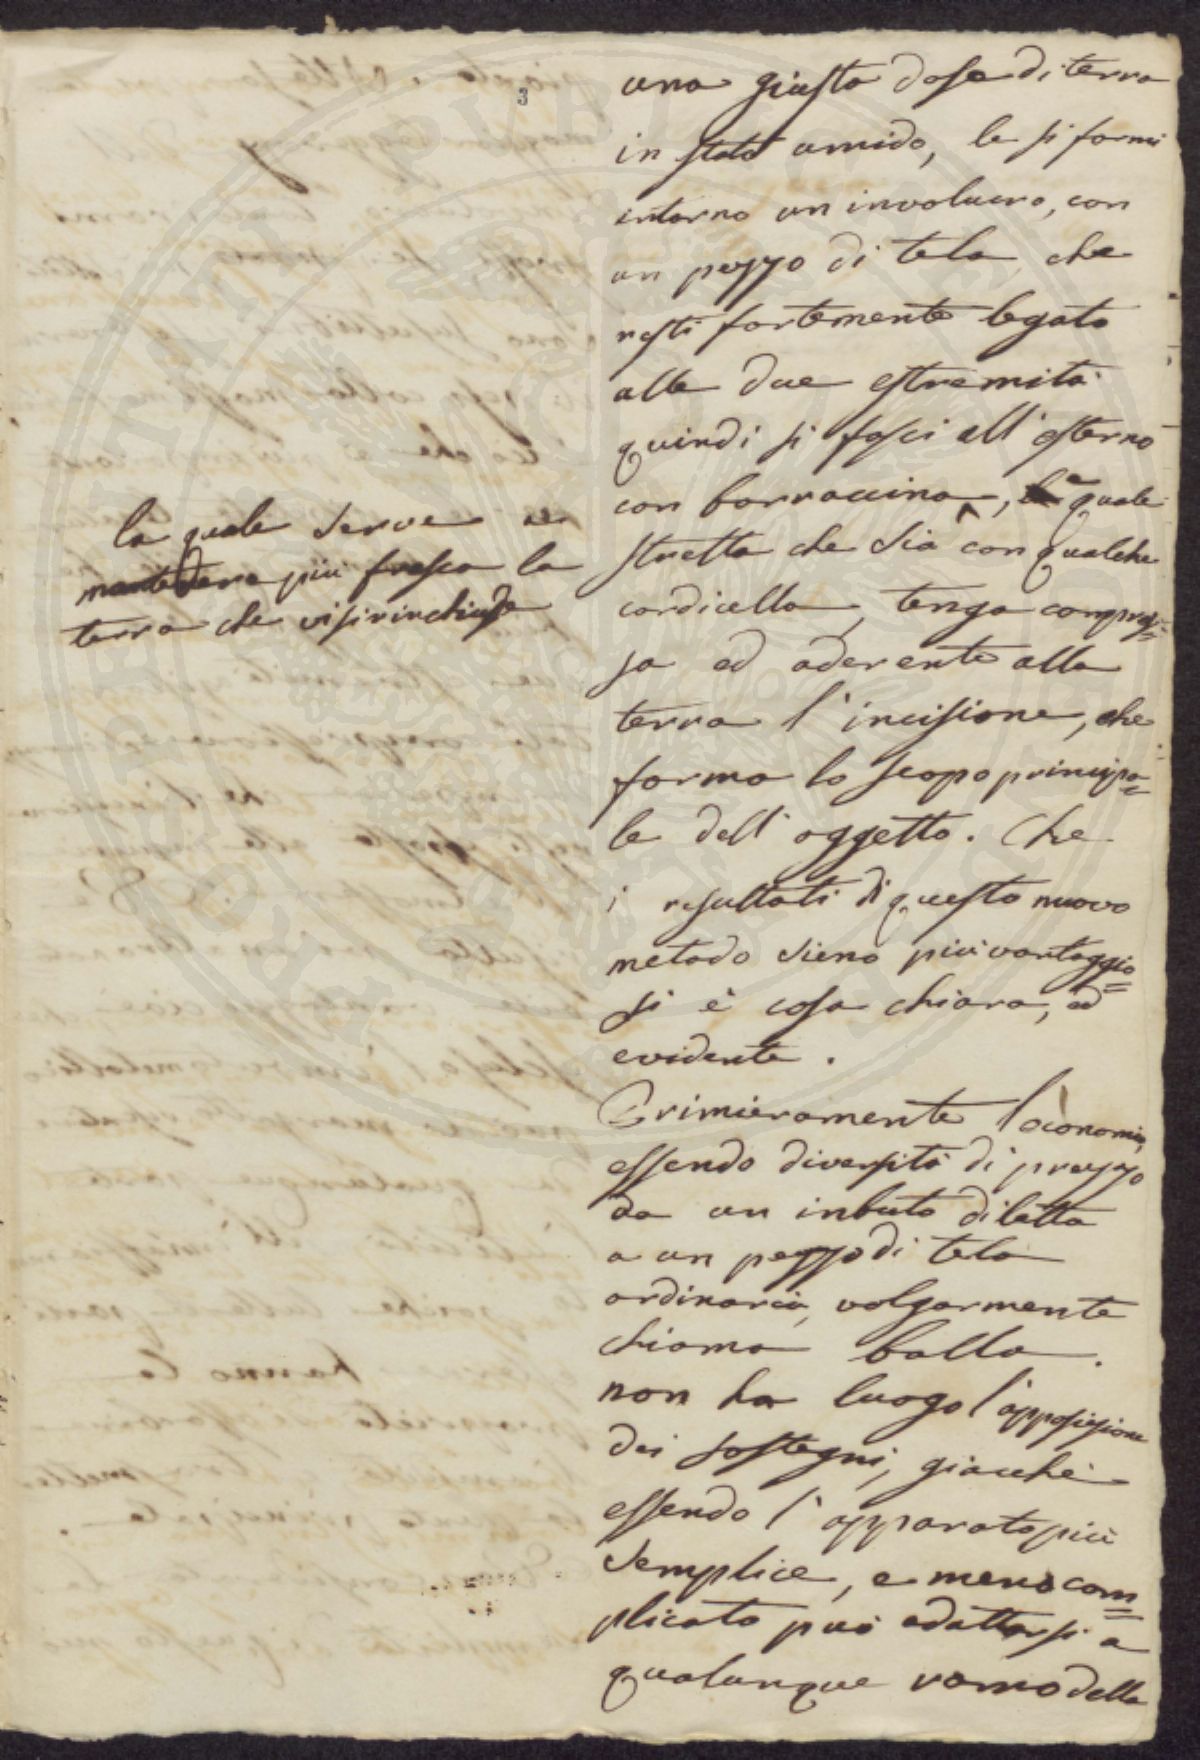 3
una giusta dose di terra
in stato umido, le si formi
intorno un involucro, con
un pezzo di tela che
resti fortemente legato
alle due estremità
quindi si fasci all'esterno
con borraccina, la quale
stretta che sia con qualche
cordicella, tenga compres=
sa ed aderente alla
terra l'incisione, che
forma lo scopo principa=
le dell'oggetto. Che
i resultati di questo nuovo
metodo sieno più vantaggio=
si è cosa chiara, ed
evidente.
Primieramente l'economia,
essendo diversità di prezzo
da un inbuto di latta
a un pezzo di tela
ordinaria, volgarmente
chiama balla.
non ha luogo l'apposizione
dei sostegni, giacchè
essendo l'apparato più
semplice, e meno com=
plicato può adattarsi a
qualunque ramo della
la quale serve a
mantenere più fresca la
terra che vi si rinchiude